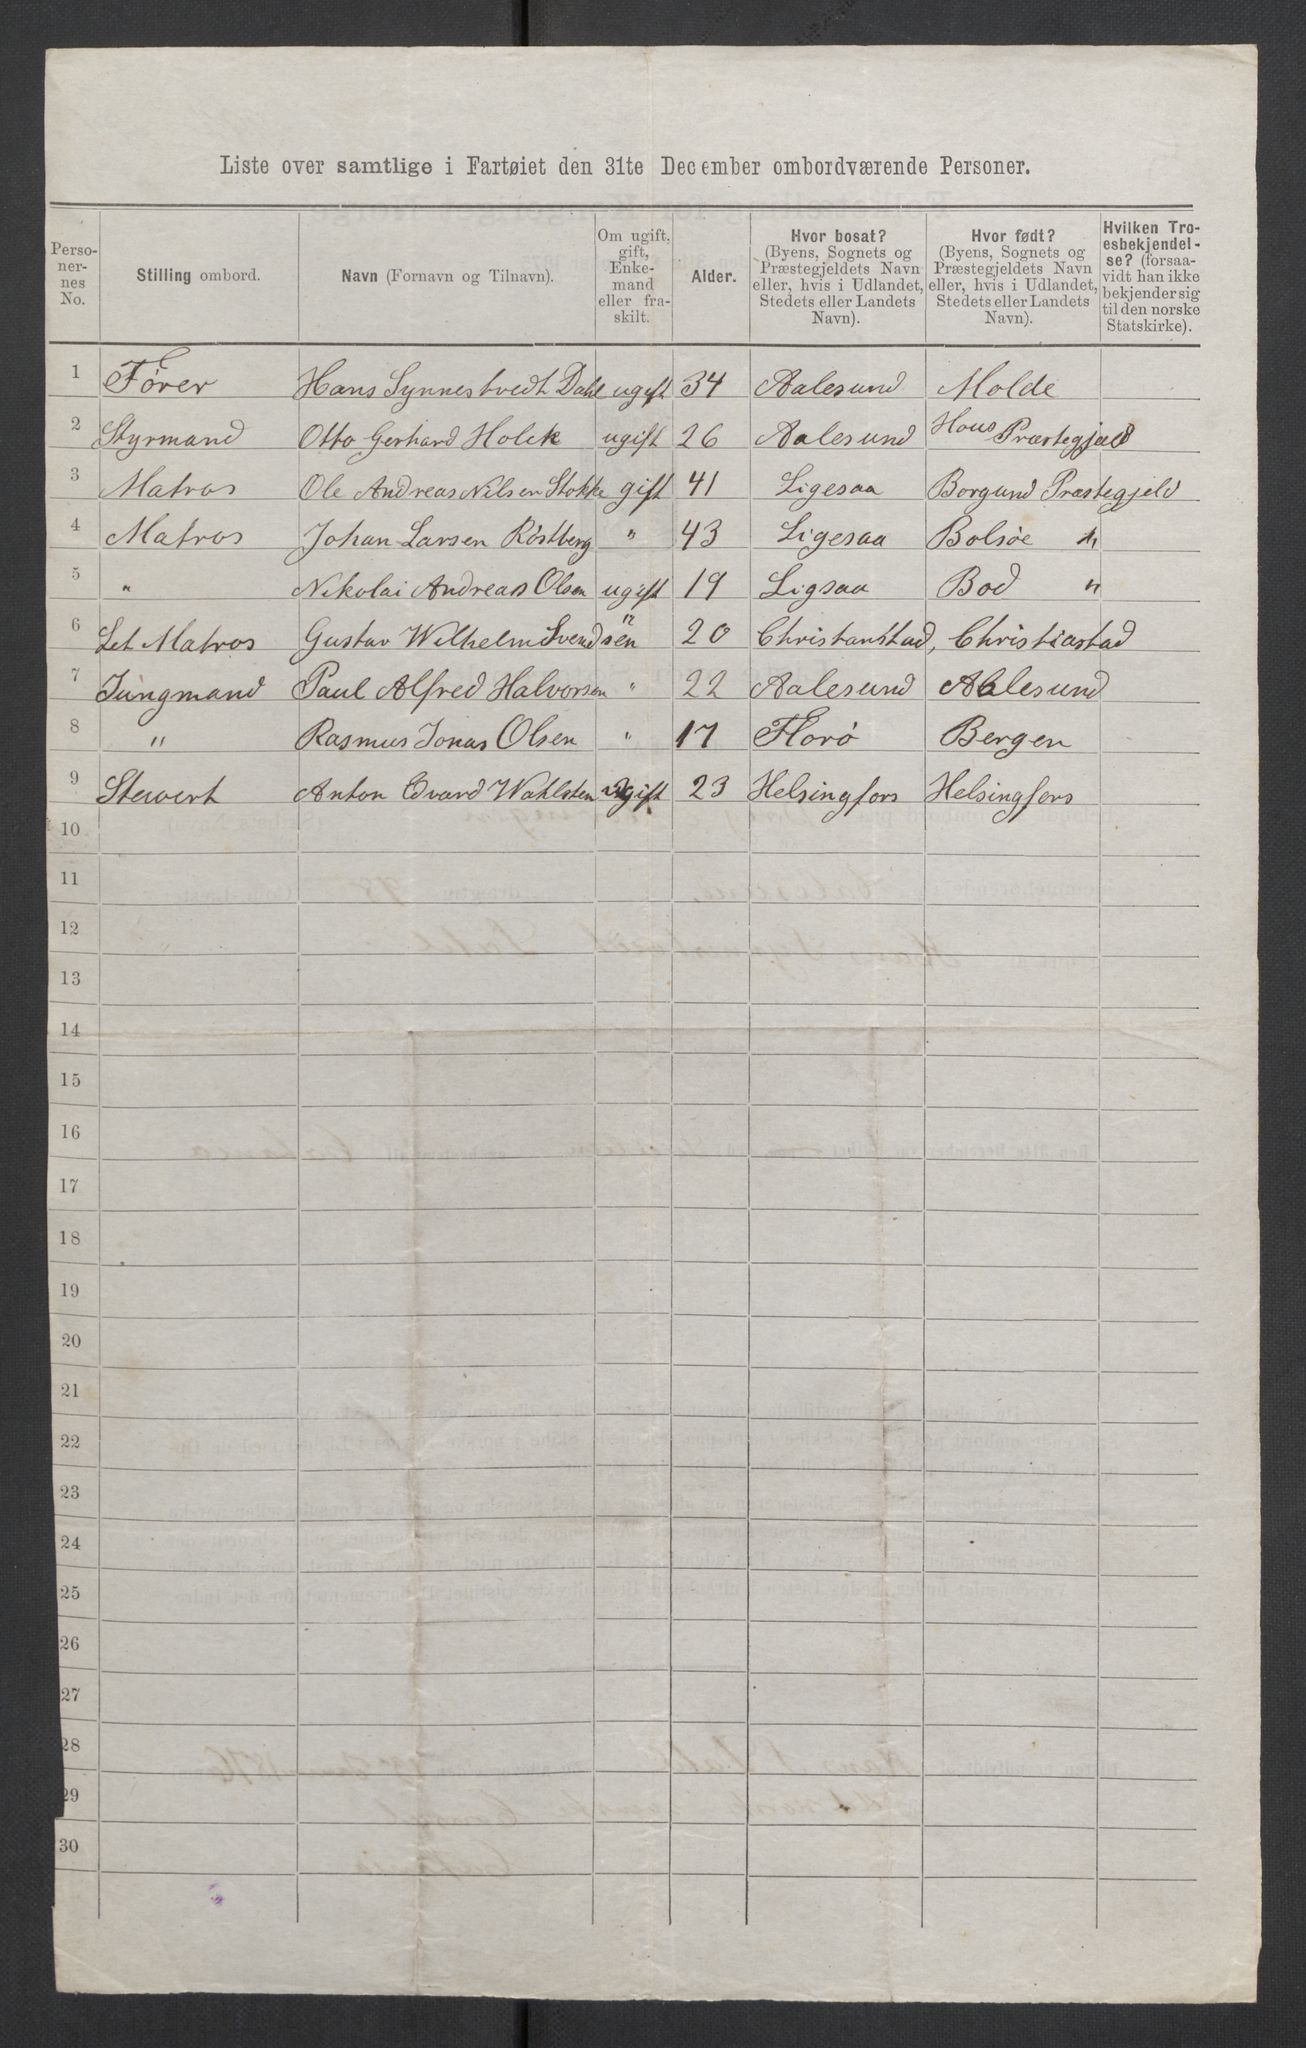 Liste over samtlige i Fartøiet den 31te December ombordværende Personer.
Perso-
ner-
nes
No.
Stilling ombord.
Navn (Fornavn og Tilnavn).
Om ugift,
gift,
Enke-
mand
eller fra-
skilt.
Alder.
Hvor bosat?
(Byens, Sognets og
Præstegjeldets Navn
eller, hvis i Udlandet,
Stedets eller Landets
Navn).
Hvor født?
(Byens, Sognets og
Præstegjeldets Navn
eller, hvis i Udlandet,
Stedets eller Landets
Navn).
Hvilken Tro-
esbekjendel-
se? (forsaa-
vidt han ikke
bekjender sig
til den norske
Statskirke).
1 Fører Hans Synnestvedt Dahl ugift 34 Aalesund Molde
2 Styrmand Otto Gerhard Holck ugift 26 Aalesund Hous Præstegjæld
3 Matros Ole Andreas Nilsen Stokke gift 41 Ligesaa Borgund Præstegjeld
4 Matros Johan Larsen Röstberg " 43 Ligesaa Bolsöe "
5 " Nikolai Andreas Olsen ugift 19 Ligsaa Bod "
6 Let Matros Gustav Wilhelm Svendsen " 20 Christanstad, Christiastad
7 Jungmand Paul Alfred Halvorsen " 22 Aalesund Aalesund
8 " Rasmus Jonas Olsen " 17 Florö Bergen
9 Stewert Anton Edvard Wahlsten ugift 23 Helsingfors Helsingfors
10
11
12
13
14
15
16
17
18
19
20
21
22
23
24
25
26
27
28
29
30